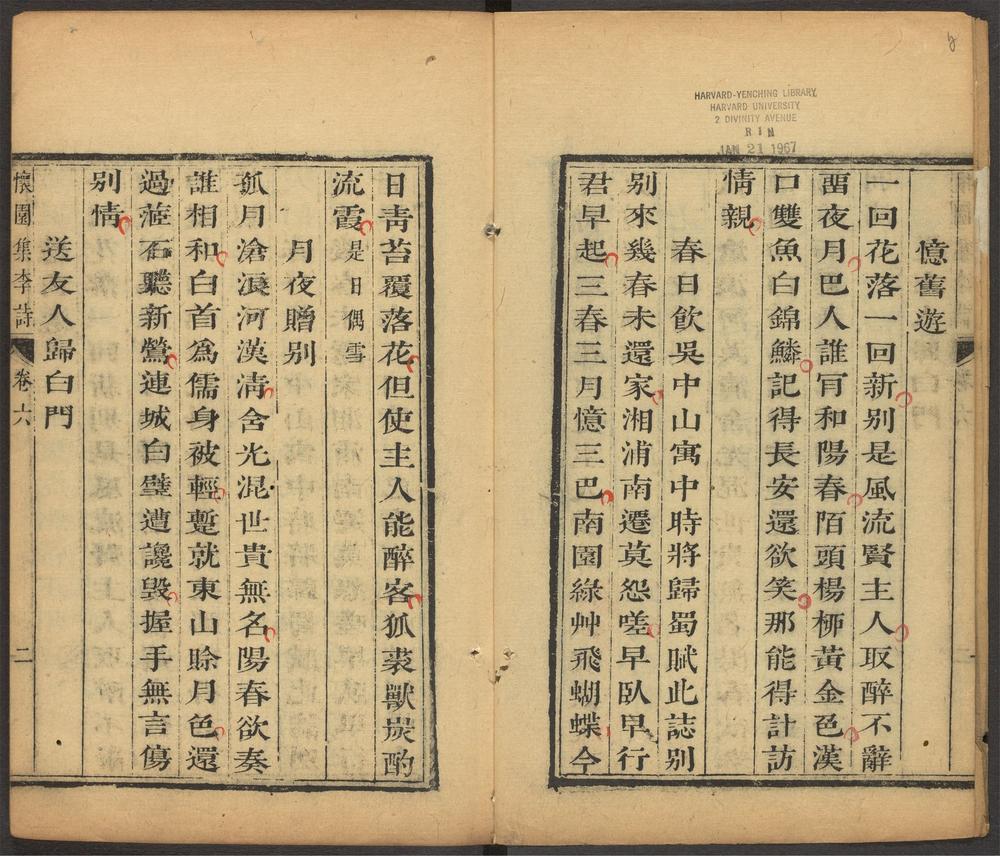 HARVARD-YENCHING LIBRARY
HARVARD UNIVERSITY
2 DIVINITY AVENUE
RIN
JAN 21 1967
憶舊遊
一回花落一回新別是風流賢主人取醉不辭
畱夜月巴人誰肎和陽春陌頭楊桺黃金色漢
口雙魚白錦鱗記得長安還欲笑那能得計訪
情親
春日飲吳中山寓中時將歸蜀賦此誌別
別來幾春未還家湘浦南遷莫怨嗟早臥早行
君早起三春三月憶三巴南園綠艸飛蝴蝶今
日靑苔覆落花但使主人能醉客狐裘獸炭酌
流霞是日偶雪
月夜贈別
孤月滄浪河漢淸含光混世貴無名陽春欲奏
誰相和白首爲儒身被輕蹔就東山賖月色還
過蓮石聽新鶯連城白璧遭讒毀握手無言傷
別情
送友人歸白門
懷園集李詩 卷六 二